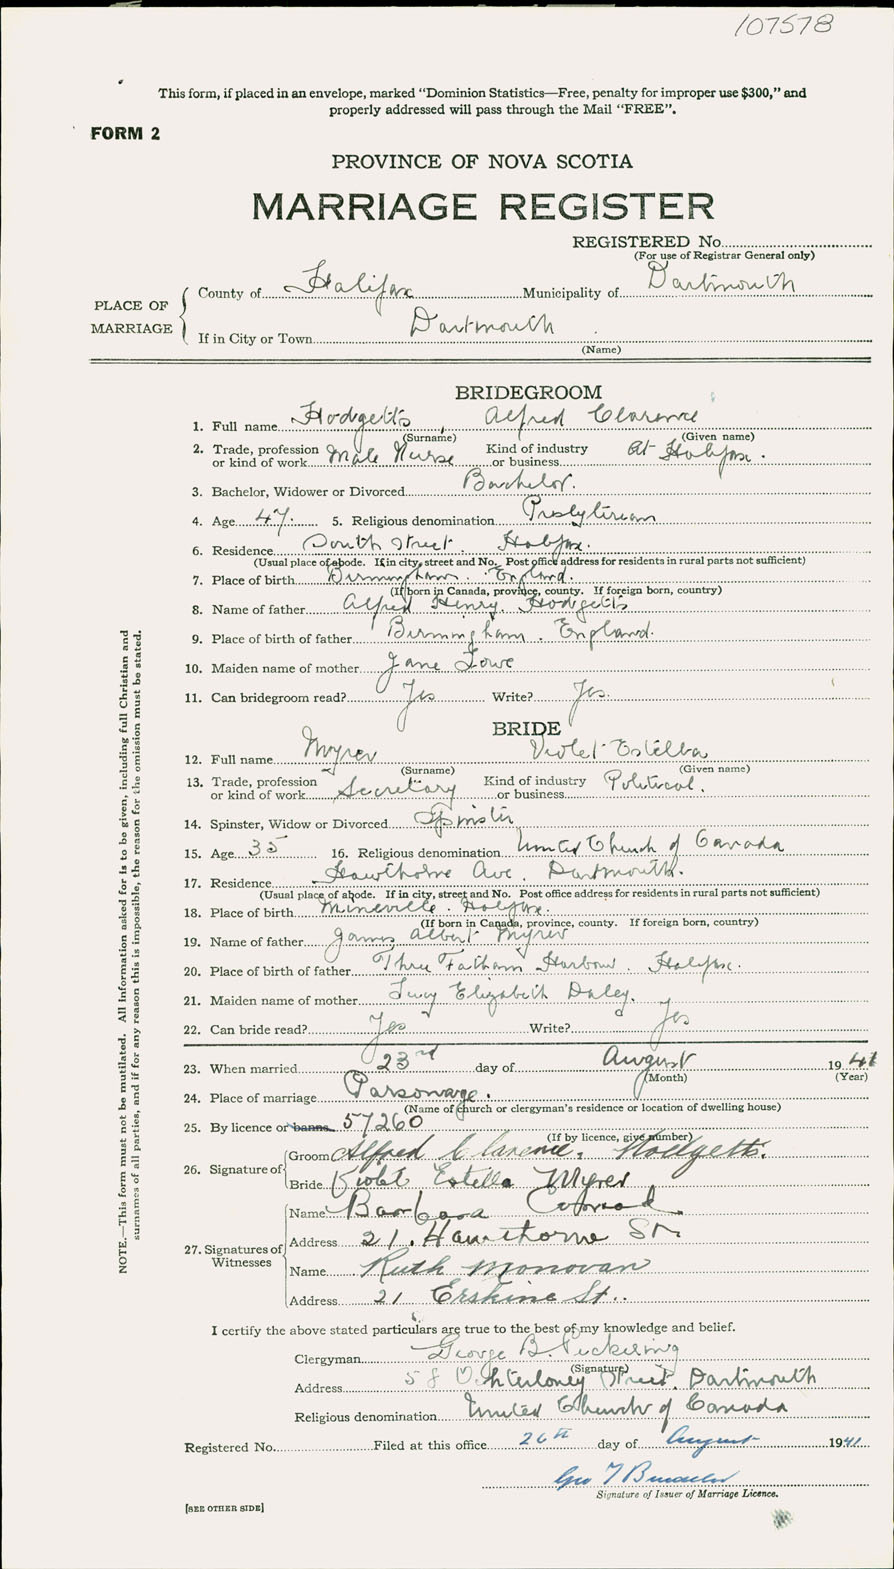 107578
This form, if placed in an envelope, marked "Dominion Statistics—Free, penalty for improper use $300," and
properly addressed will pass through the Mail "FREE".
FORM 2
PROVINCE OF NOVA SCOTIA
MARRIAGE REGISTER
REGISTERED No.
(For use of Registrar General only)
PLACE OF MARRIAGE
County of Halifax Municipality of Dartmouth
If in City or Town Dartmouth
(Name)
BRIDEGROOM
1. Full name Hodgetts, Alfred Clarence
(Surname) (Given name)
2. Trade, profession or kind of work Male Nurse Kind of industry or business At Halifax.
3. Bachelor, Widower or Divorced Bachelor.
4. Age 47. 5. Religious denomination Presbyterian
6. Residence South Street Halifax.
(Usual place of abode. If in city, street and No. Post office address for residents in rural parts not sufficient)
7. Place of birth Birmingham. England.
(If born in Canada, province, county. If foreign born, country)
8. Name of father Alfred Henry. Hodgetts
9. Place of birth of father Birmingham. England.
10. Maiden name of mother Jane Lowe
11. Can bridegroom read? Yes Write? Yes.
BRIDE
12. Full name Myrer Violet Estella
(Surname) (Given name)
13. Trade, profession or kind of work Secretary Kind of industry or business Political.
14. Spinster, Widow or Divorced Spinster
15. Age 35 16. Religious denomination United Church of Canada
17. Residence Hawthorne Ave. Dartmouth.
(Usual place of abode. If in city, street and No. Post office address for residents in rural parts not sufficient)
18. Place of birth Mineville. Halifax.
(If born in Canada, province, country. If foreign born, country)
19. Name of father James Albert Myrer
20. Place of birth of father Three Fathom Harbour. Halifax.
21. Maiden name of mother Lucy Elizabeth Daley.
22. Can bride read? Yes Write? Yes
23. When married 23rd day of August 1941
(Month) (Year)
24. Place of marriage Parsonage.
(Name of church or clergyman's residence or location of dwelling house)
25. By licence or banns 57260
(If by licence, give number)
26. Signature of
Groom Alfred Clarence. Hodgetts.
Bride Violet Estella Myrer
27. Signatures of Witnesses
Name Barbara Conrad
Address 21. Hawthorne St.
Name Ruth Monovan
Address 21 Erskine St..
I certify the above stated particulars are true to the best of my knowledge and belief.
Clergyman George B. Pickering
(Signature)
Address 58 Ochterloney Street. Dartmouth
Religious denomination United Church of Canada
Registered No. Filed at this office 26th day of August 1941
Geo T
Signature of Issuer of Marriage Licence.
[SEE OTHER SIDE]
NOTE.—This form must not be mutilated. All Information asked for is to be given, including full Christian and
surnames of all parties, and if for any reason this is impossible, the reason for the omission must be stated.